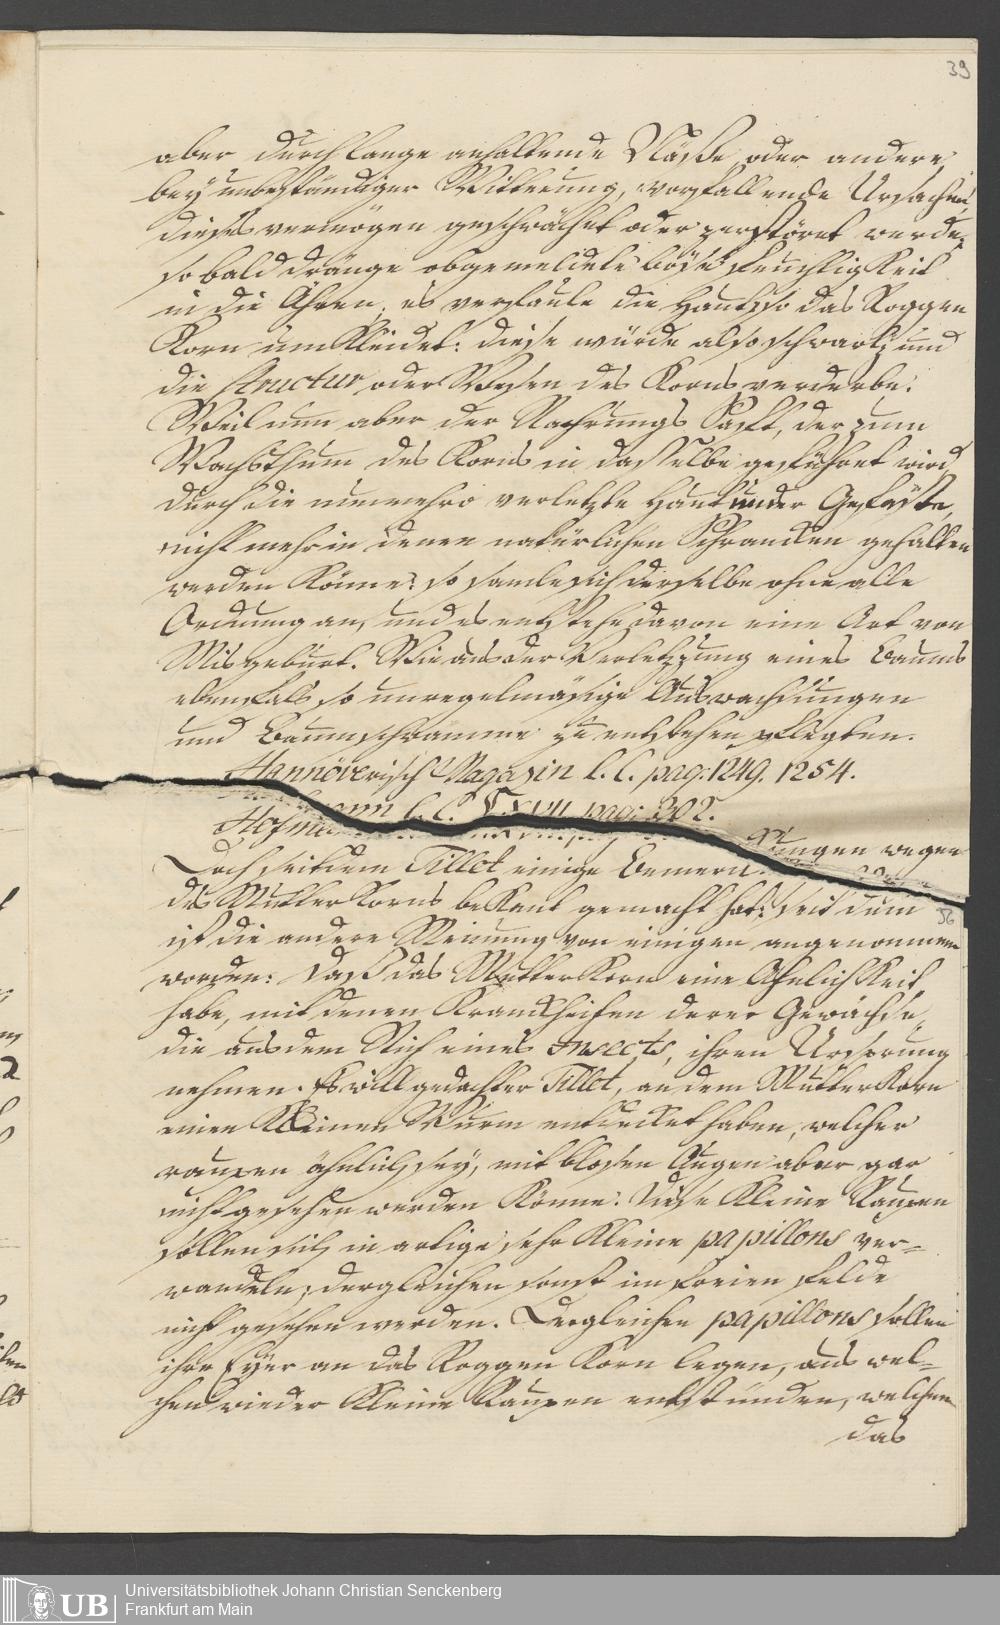 39
aber durch lange anhaltende Näße, oder andere,
bey unbeständiger Witterung, vorfallende Ursachen,
dieses vermögen geschwächet oder zerstöret werde;
so bald dränge obgemeldete böse feuchtigkeit
in die Ähren, es verfaule die Haut, so das Roggen
Korn umkleidet: diese würde also schwartz und
die Structur oder Wesen des Korns verderbe.
Weil nun aber der Nahrungs Safft, der zum
Wachsthum des Korns in dasselbe geführet wird,
durch die nunmehro verletzte Haut und Gefäße,
nicht mehr in denen natürlichen Schrancken gehalten
werden könne: so samle sich derselbe ohne alle
Ordnung an, und es entstehe davon eine Art von
Misgeburt. Wie aus der Verletzung eines Baums
ebenfals so unregelmäsige Auswachsungen
und Baumschwamme zu entstehen pflegten.
Hannöverisch Magazin l. c. pag: 1249. 1254.
l. c. pag: 202.
Doch seitdem Tillet einige wegen
des Mutter Korns bekant gemacht hat: seit dem
56
ist die andere Meinung von einigen angenommen
worden: daß das Mutter Korn eine Ähnlichkeit
habe, mit denen Kranckheiten derer Gewächse,
die aus dem Stich eines Insects, ihren Ursprung
nehmen. Es will gedachter Tillet, an dem Mutter Korn
einen kleinen Wurm entdecket haben, welcher
raupen ähnlich sey, mit blosen Augen aber gar
nicht gesehen werden könne: diese kleine Raupen
sollen sich in artige sehr kleine papillons ver-
wandeln, dergleichen sonst im freien felde
nicht gesehen werden. Dergleichen papillons sollen
ihre Eyer an das Roggen Korn legen, aus wel-
chen wieder kleine Raupen entstünden, welchen
das
Universitätsbibliothek Johann Christian Senckenberg
Frankfurt am Main
UB